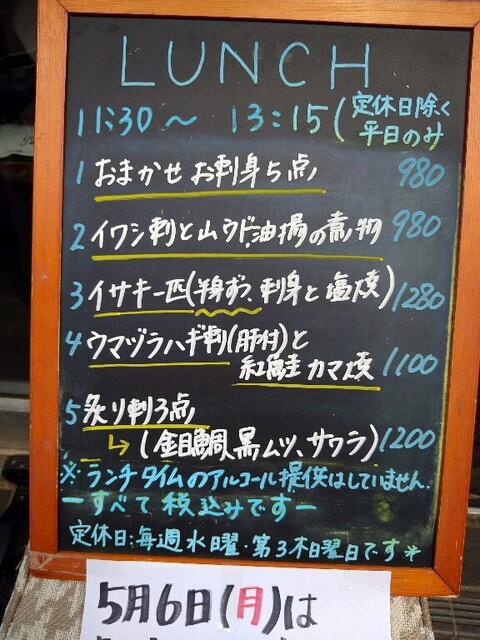 LUNCH
11:30〜 13:15(定休日除く
平日のみ
1 おまかせ お刺身5点 980
2 イワシ刺と山ウド、油揚の煮物 980
3 イサキ一匹(半身ずつ、刺身と塩焼) 1280
4 ウマヅラハギ刺(肝付)と
紅鮭カマ焼 1100
5 炙り刺3点
→(金目鯛、黒ムツ、サワラ) 1200
※ランチタイムのアルコール提供はしていません.
ーすべて税込みですー
定休日:毎週水曜・第3木曜日です*
5月6日(月)は